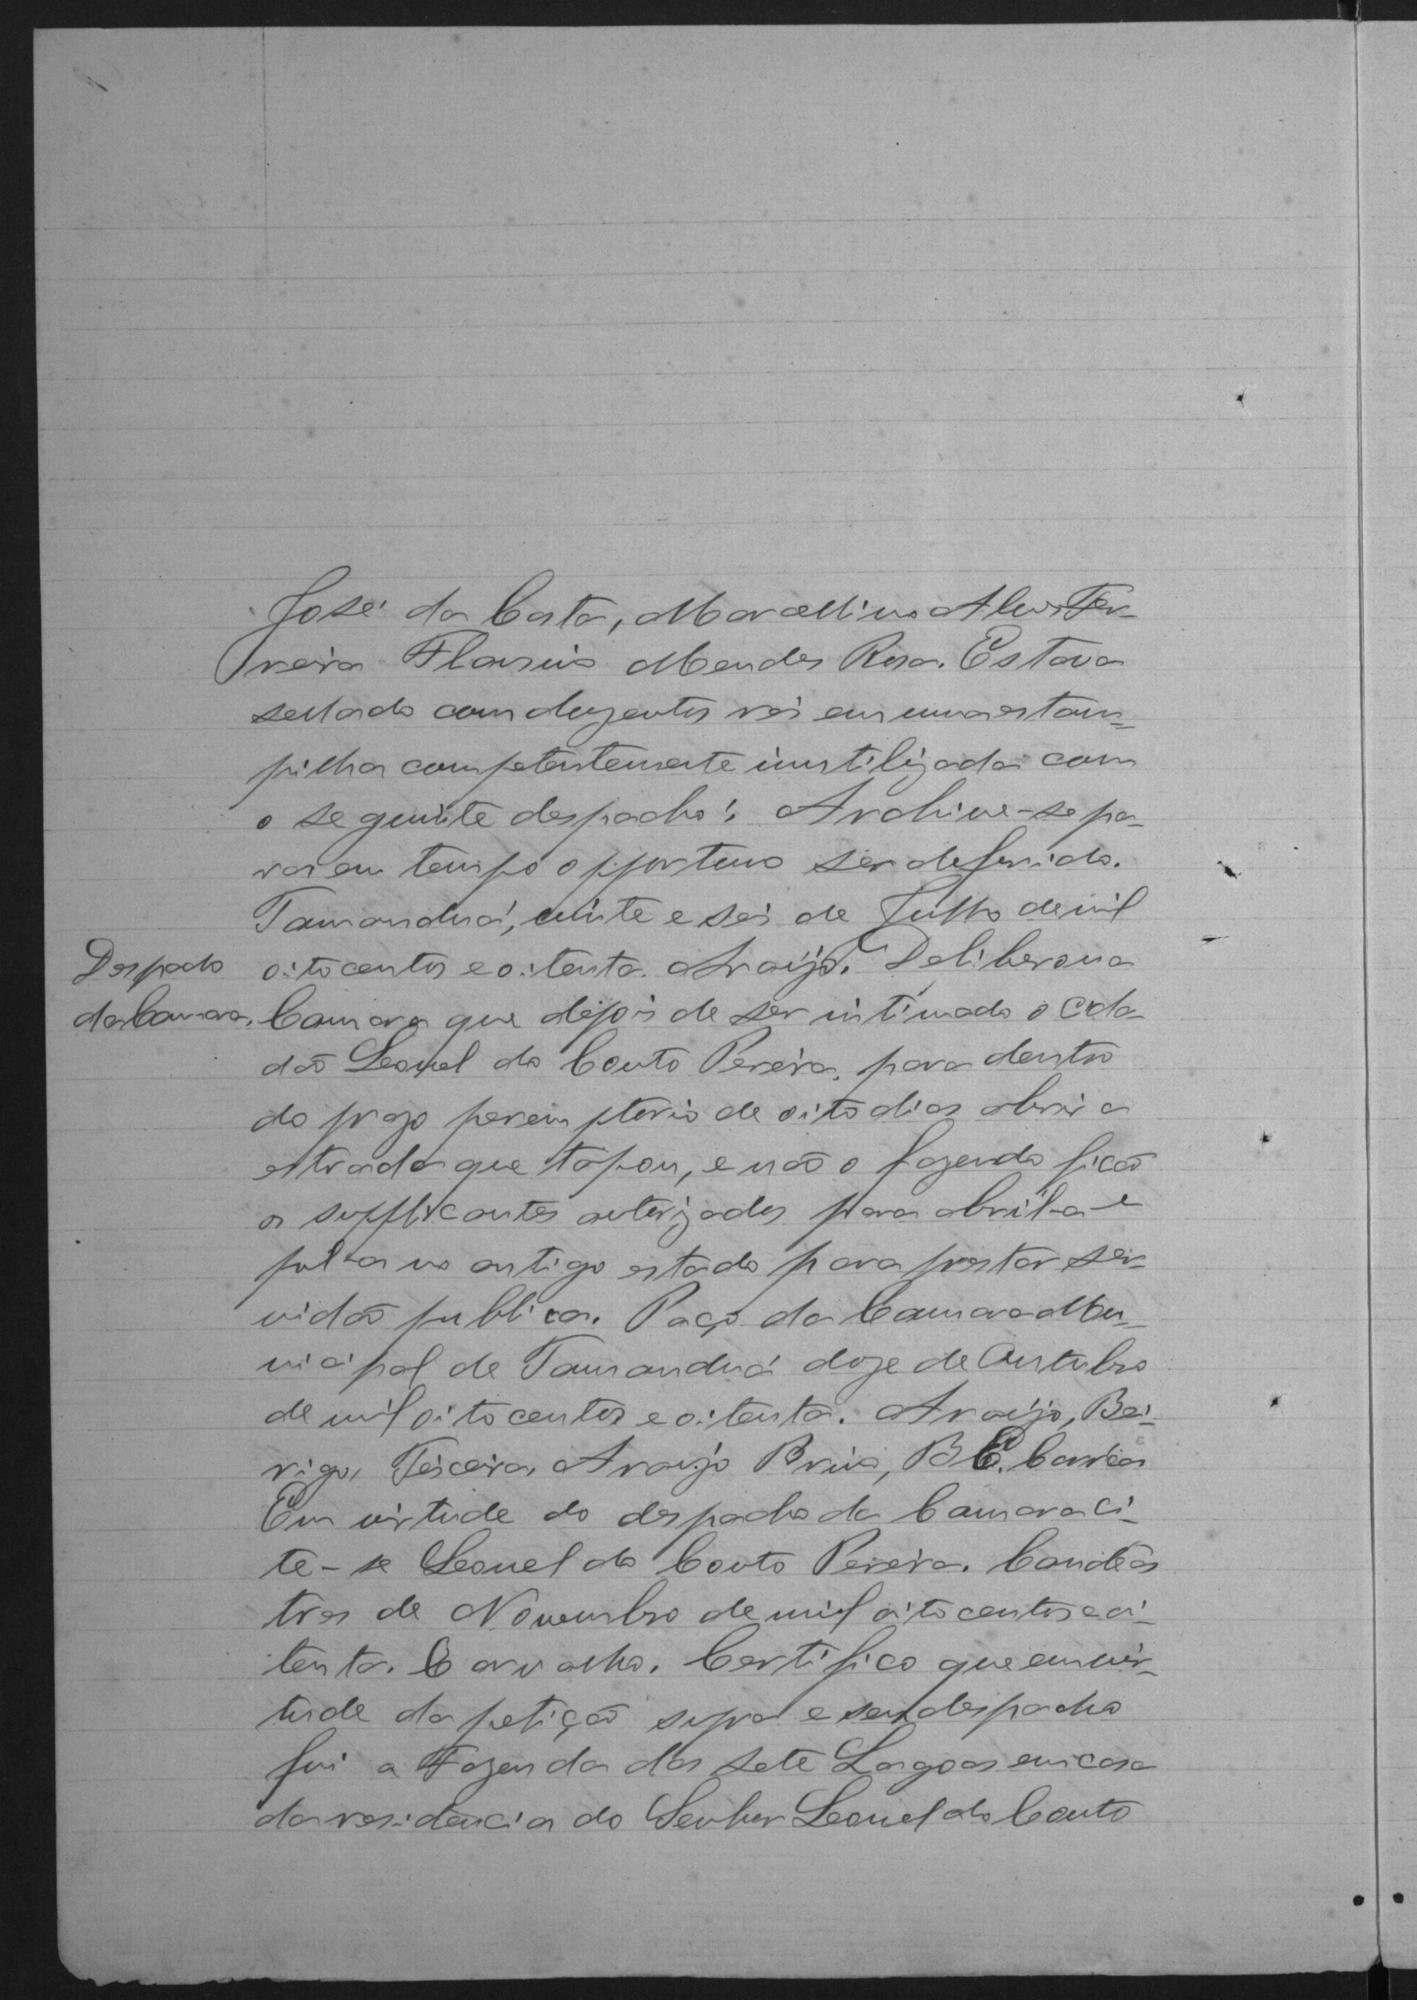 José da Costa, Marcellino Alves Fer-
reira Flausio Mendes Rosa. Estava
sellado com duzentos reis em uma estam-
pilha competentemente inutilizada com
o seguinte despacho: Archive-se pa-
ra em tempo opportuno ser deferido.
Tamanduá, vinte e seis de Julho de mil
oitocentos e oitenta. Araujo. Deliberou a
Despacho
da Camara.
Camara que depois de ser intimado o cida-
dão Leonel do Couto Pereira, para dentro
do prazo peremptorio de oito dias abrir a
estrada que tapou, e não o fazendo ficão
os supplicantes autorizados para abril-a e
pul-a no antigo estado para prestar ser-
vidão publica. Paço da Camara Mu-
nicipal de Tamanduá doze de Outubro
de mil oitocentos e oitenta. Araujo, Bei-
rigo, Teixeira, Araujo B. C. Corrêa
Em virtude do despacho da Camara ci-
te-se Leonel do Couto Pereira. Candêas
tres de Novembro de mil oitocentos e oi-
tenta. Carvalho. Certifico que em vir-
tude da petição supra e seu despacho
fui a Fazenda das Sete Lagoas em casa
da residencia do Senhor Leonel do Couto